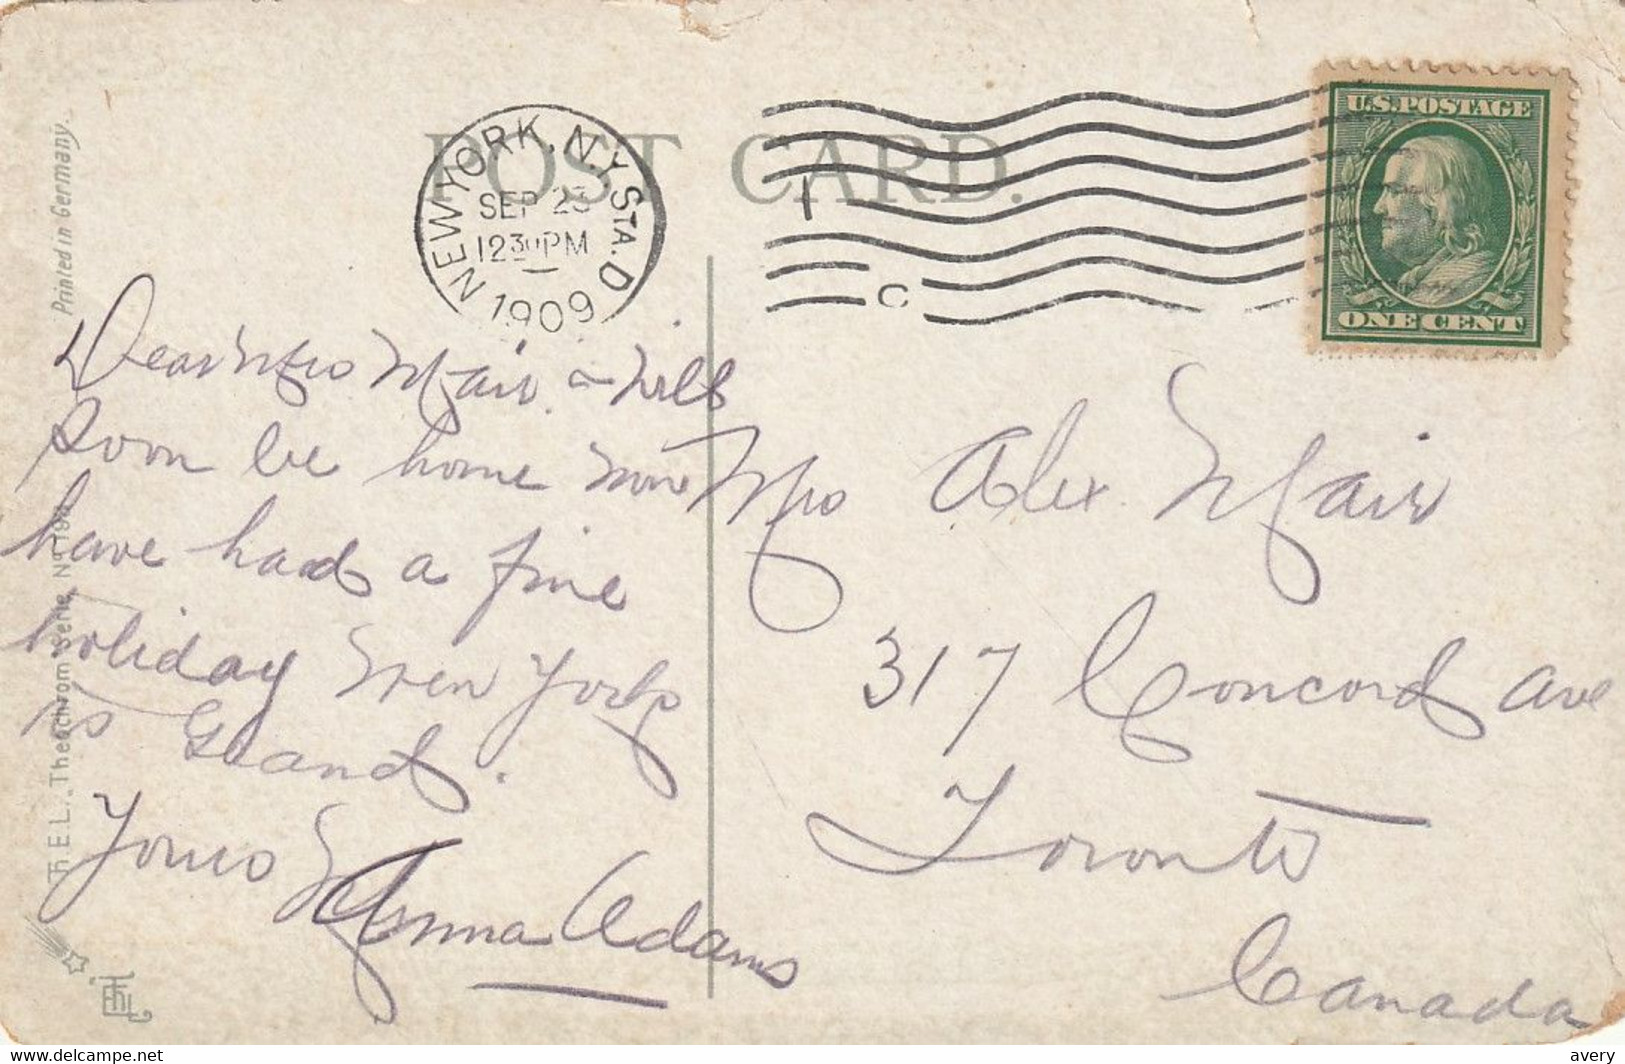 POST CARD.
NEW YORK, N.Y. STA. D
SEP 23
1230PM
1909
1
C
U.S. POSTAGE
ONE CENT
Printed in Germany.
Th. E. L. „Theochrom“ Serie N° 1194
Dear Mrs Mair. Will
soon be home now
have had a fine
holiday New York
is Grand.
Yours
Anna Adams
Mrs Alex. Mair
317 Concord ave
Toronto
Canada
delcampe.net
avery